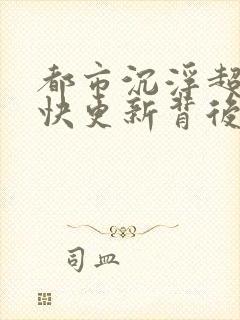 都市沉浮超
快更新背後
司皿